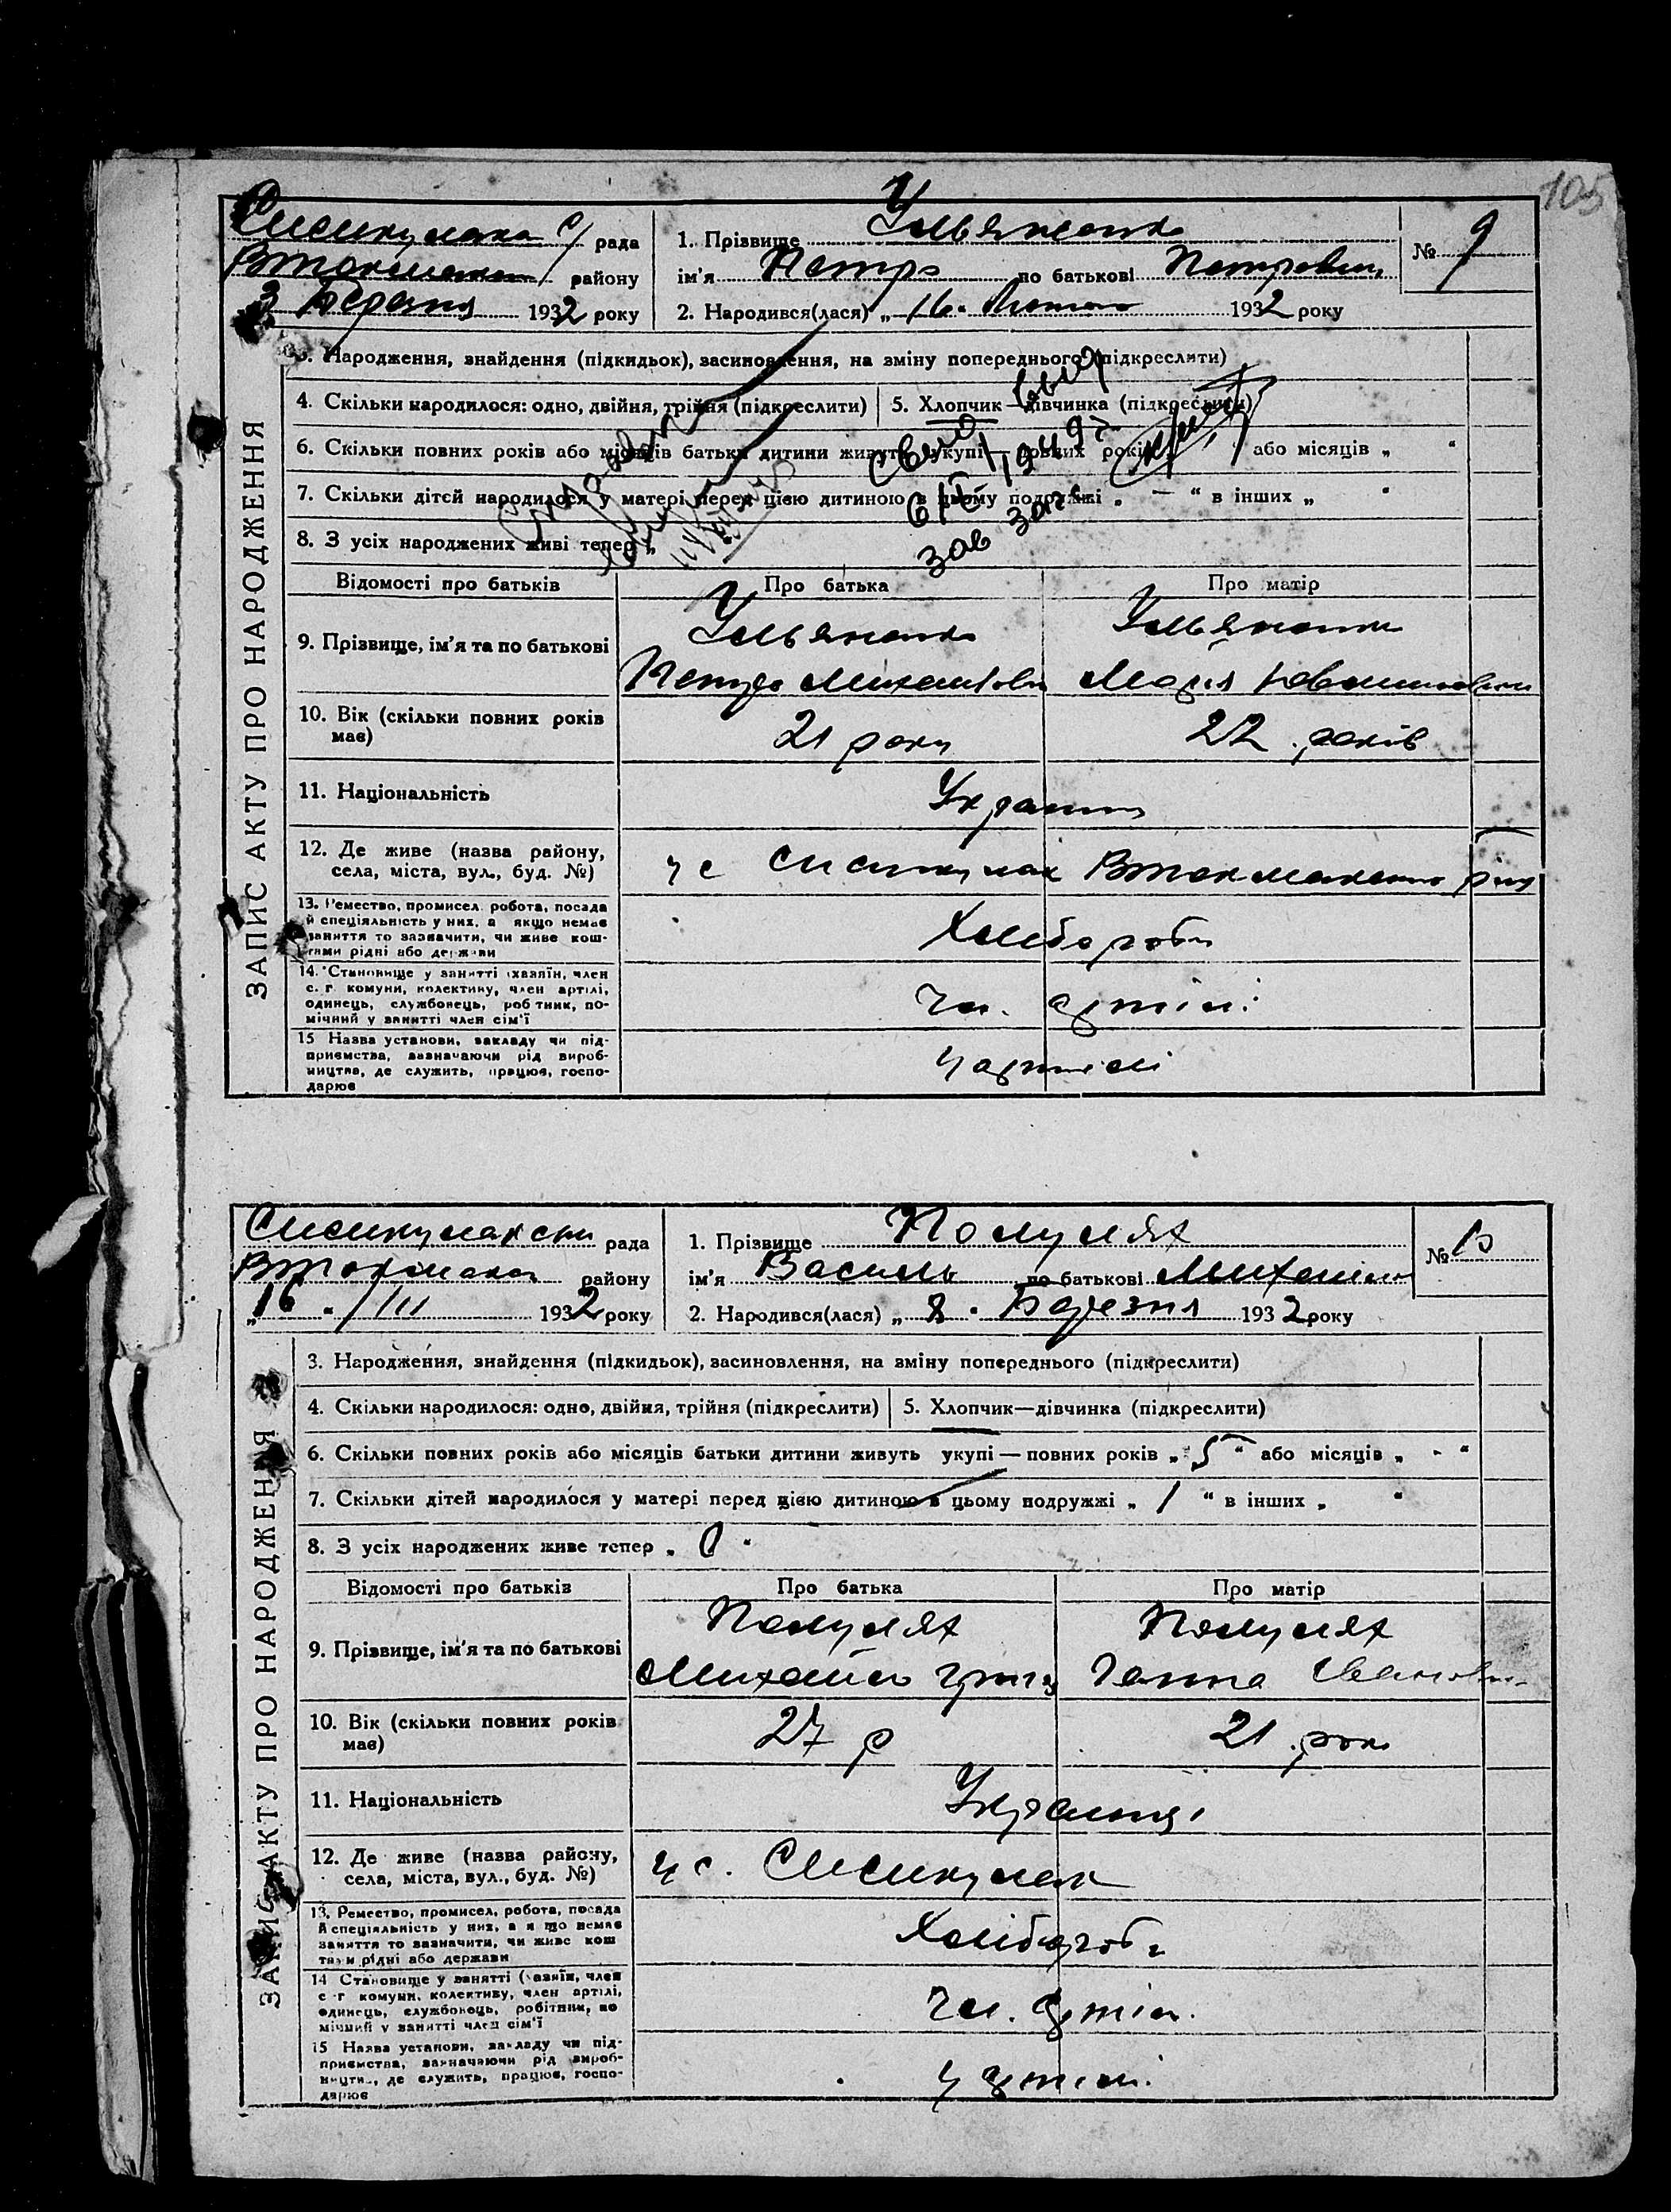 105
ЗАПИС АКТУ ПРО НАРОДЖЕННЯ
рада
району
3 Березня 1932 року
1. Прізвище Ульяненко
ім'я Петро по батькові Петрович
№ 9
2. Народився(лася) „16" Лютого 1932 року
3. Народження, знайдення (підкидьок), засиновлення, на зміну попереднього (підкреслити)
4. Скільки народилося: одно, двійня, трійня (підкреслити)
5. Хлопчик—дівчинка (підкреслити)
6. Скільки повних років або місяців батьки дитини живуть укупі — повних років або місяців „ "
7. Скільки дітей народилося у матері перед цією дитиною в цьому подружжі „ — " в інших „ "
8. З усіх народжених живі тепер „
зав загс
Відомості про батьків
Про батька
Про матір
9. Прізвище, ім'я та по батькові
Ульяненко
Ульяненко
Петро Михайлович
Марія
10. Вік (скільки повних років має)
21 роки
22 років
11. Національність
Українці
12. Де живе (назва району,
села, міста, вул., буд. №)
у с
13. Ремество, промисел, робота, посада
й спеціяльність у них, а якщо немає
заняття то зазначити, чи живе кош-
тами рідні або держави
Хлібороби
14. Становище у занятті (хазяїн, член
с.-г. комуни, колективу, член артілі,
одинець, службовець, робітник, по-
мічний у занятті член сім'ї
Чл. артілі
15 Назва установи, закладу чи під-
приємства, зазначаючи рід вироб-
ництва, де служить, працює, госпо-
дарює
У артілі
ЗАПИС АКТУ ПРО НАРОДЖЕННЯ
рада
району
„16" /III 1932 року
1. Прізвище Полулях
ім'я Василь по батькові Михайлов
№ 10
2. Народився(лася) „8" Березня 1932 року
3. Народження, знайдення (підкидьок), засиновлення, на зміну попереднього (підкреслити)
4. Скільки народилося: одно, двійня, трійня (підкреслити)
5. Хлопчик—дівчинка (підкреслити)
6. Скільки повних років або місяців батьки дитини живуть укупі — повних років „5" або місяців „-"
7. Скільки дітей народилося у матері перед цією дитиною в цьому подружжі „1" в інших „ "
8. З усіх народжених живе тепер „0"
Відомості про батьків
Про батька
Про матір
9. Прізвище, ім'я та по батькові
Полулях
Полулях
Михайло Григ
Ганна Іванов
10. Вік (скільки повних років має)
27 р
21 рок
11. Національність
Українці
12. Де живе (назва району,
села, міста, вул., буд. №)
у с.
13. Ремество, промисел, робота, посада
й спеціяльність у них, а якщо немає
заняття то зазначити, чи живе кош
тами рідні або держави
Хлібороби
14 Становище у занятті (хазяїн, член
с-г комуни, колективу, член артілі,
одинець, службовець, робітник, по
мічний у занятті член сім'ї
Чл. артіл.
15 Назва установи, закладу чи під-
приємства, зазначаючи рід вироб-
ництва, де служить, працює, госпо-
дарює
У артілі.